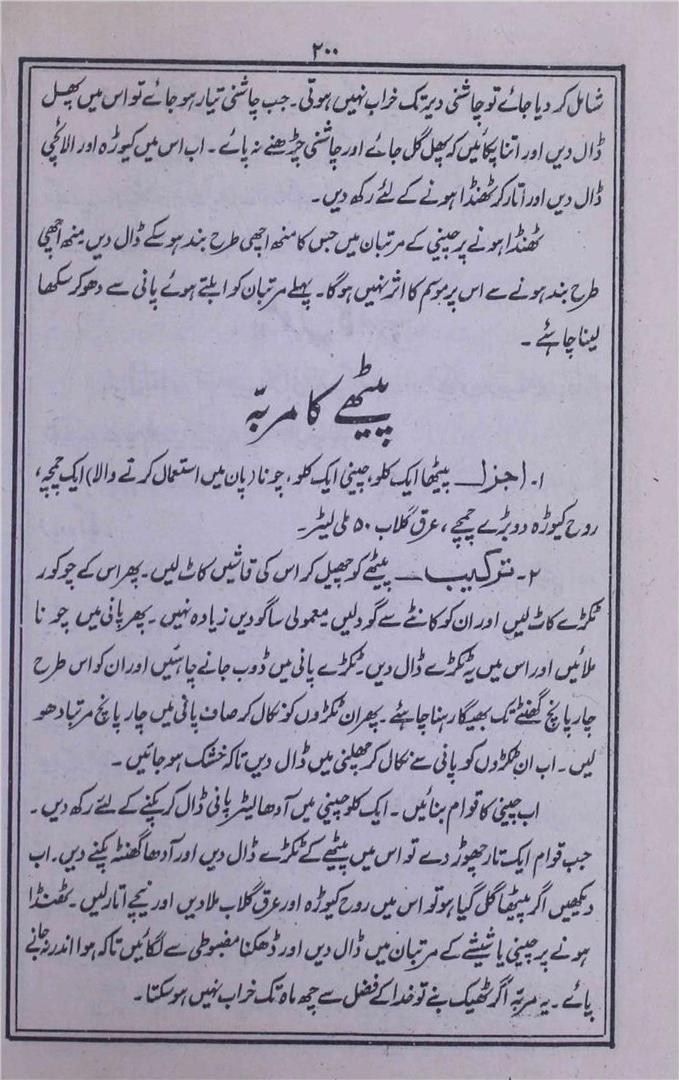 ۲۰۰
شامل کر دیا جائے تو چاشنی دیر تک خراب نہیں ہوتی۔ جب چاشنی تیار ہو جائے تو اس میں پھل
ڈال دیں اور اتنا پکائیں کہ پھل گل جائے اور چاشنی چڑھنے نہ پائے۔ اب اس میں کیوڑہ اور الائچی
ڈال دیں اور اتار کر ٹھنڈا ہونے کے لئے رکھ دیں۔
ٹھنڈا ہونے پر چینی کے مرتبان میں جس کا منھ اچھی طرح بند ہو سکے ڈال دیں منھ اچھی
طرح بند ہونے سے اس پر موسم کا اثر نہیں ہوگا۔ پہلے مرتبان کو ابلتے ہوئے پانی سے دھو کر سکھا
لینا چاہئے۔
پیٹھے کا مربّہ
۱۔ اجزا — پیٹھا ایک کلو، چینی ایک کلو، چونا (پان میں استعمال کرنے والا) ایک چمچہ،
روح کیوڑہ دو بڑے چمچے، عرق گلاب ۵۰ ملی لیٹر۔
۲۔ ترکیب — پیٹھے کو چھیل کر اس کی قاشیں کاٹ لیں۔ پھر اس کے چوکور
ٹکڑے کاٹ لیں اور ان کو کانٹے سے گود لیں معمولی سا گودیں زیادہ نہیں۔ پھر پانی میں چونا
ملائیں اور اس میں یہ ٹکڑے ڈال دیں۔ ٹکڑے پانی میں ڈوب جانے چاہئیں اور ان کو اس طرح
چار پانچ گھنٹے تک بھیگا رہنا چاہئے۔ پھر ان ٹکڑوں کو نکال کر صاف پانی میں چار پانچ مرتبا دھو
لیں۔ اب ان ٹکڑوں کو پانی سے نکال کر چھلنی میں ڈال دیں تاکہ خشک ہو جائیں۔
اب چینی کا قوام بنائیں۔ ایک کلو چینی میں آدھا لیٹر پانی ڈال کر پکنے کے لئے رکھ دیں۔
جب قوام ایک تار چھوڑ دے تو اس میں پیٹھے کے ٹکڑے ڈال دیں اور آدھا گھنٹہ پکنے دیں۔ اب
دیکھیں اگر پیٹھا گل گیا ہو تو اس میں روح کیوڑہ اور عرق گلاب ملا دیں اور نیچے اتار لیں۔ ٹھنڈا
ہونے پر چینی یا شیشے کے مرتبان میں ڈال دیں اور ڈھکنا مضبوطی سے لگائیں تاکہ ہوا اندر نہ جانے
پائے۔ یہ مربّہ اگر ٹھیک بنے تو خدا کے فضل سے چھ ماہ تک خراب نہیں ہو سکتا۔